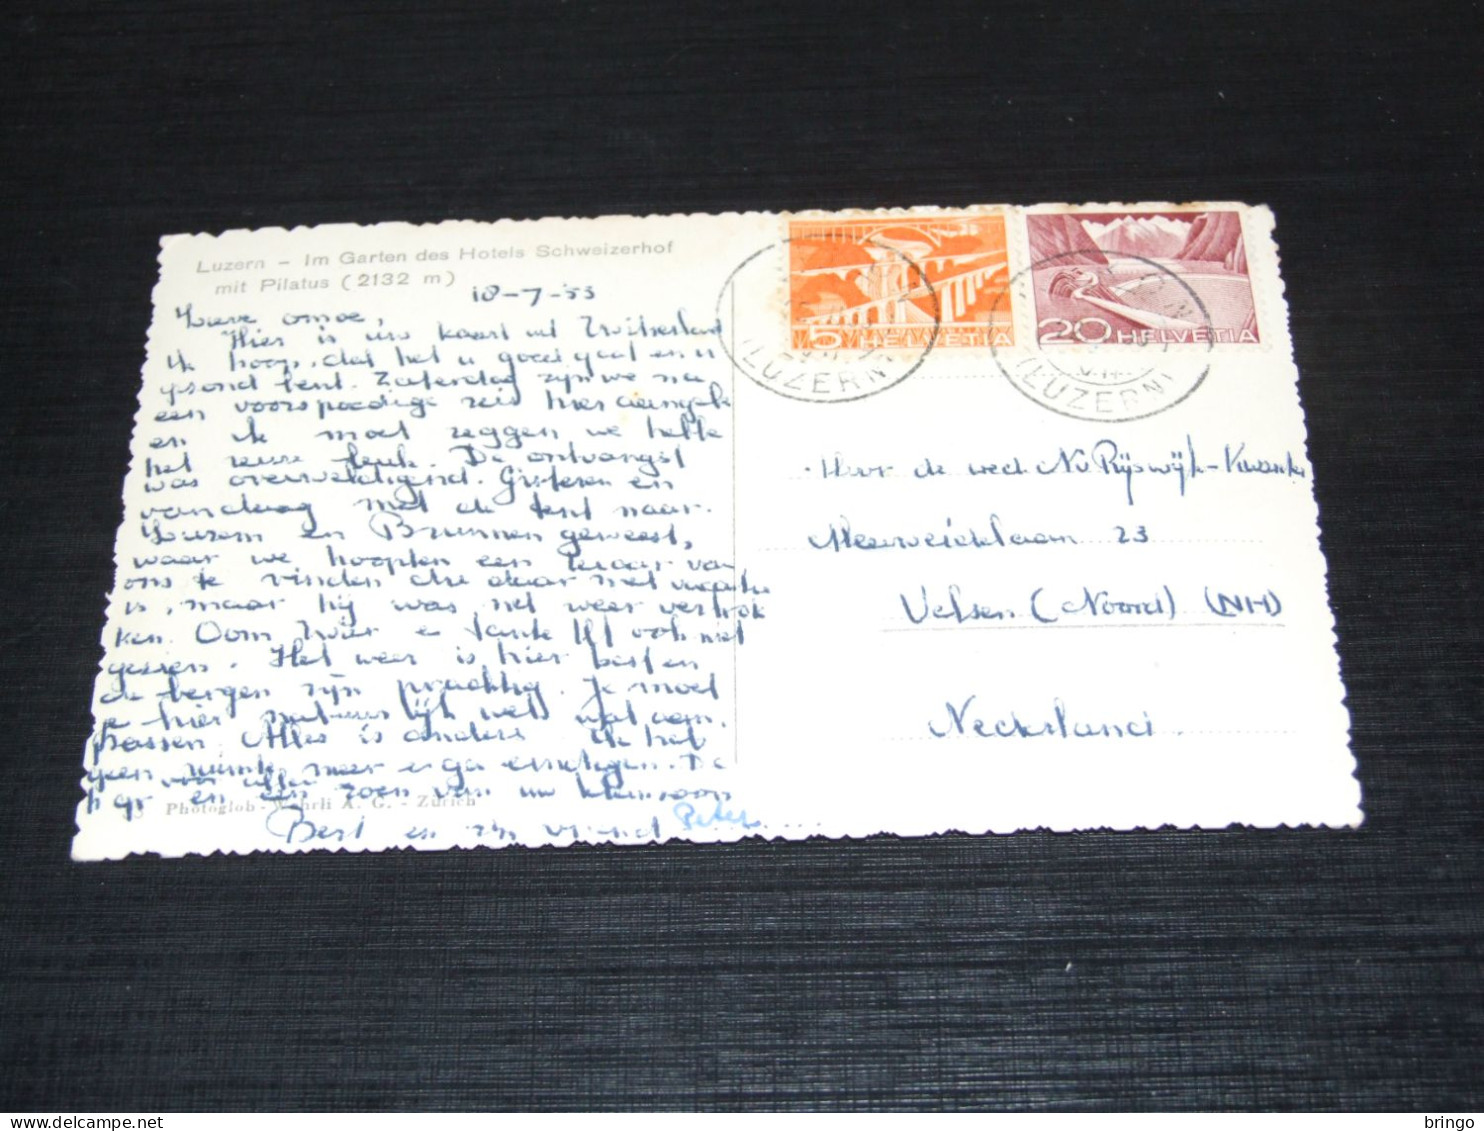 Luzern - Im Garten des Hotels Schweizerhof
mit Pilatus (2132 m)
18-7-'53
Lieve omoe,
Hier is uw kaart uit Zwitserland
Ik hoop dat het u goed gaat en u
gezond bent. Zaterdag zijn we na
een voorspoedige reis hier aangek
en ik moet zeggen we hebbe
het reuze leuk. De ontvangst
was overweldigend. Gisteren en
vandaag met de tent naar
Luzern en Brunnen geweest,
waar we hoopten een leraar van
ons te vinden die daar met vacantie
is, maar hij was net weer vertrok
ken. Oom en tante niet
gezien. Het weer is hier best en
de bergen zijn prachtig. Je moet
je hier natuurlijk wel wat aan
passen. Alles is anders ik heb
geen meer De
voor alles
hgr en een zoen van uw kleinzoon
Photoglob-Wehrli A. G. - Zürich
Bert en zijn vriend Peter
5 HELVETIA
20 HELVETIA
(LUZERN)
(LUZERN)
de wed N.v. Rijswijk-
23
Velsen (Noord) (NH)
Nederland.
bringo